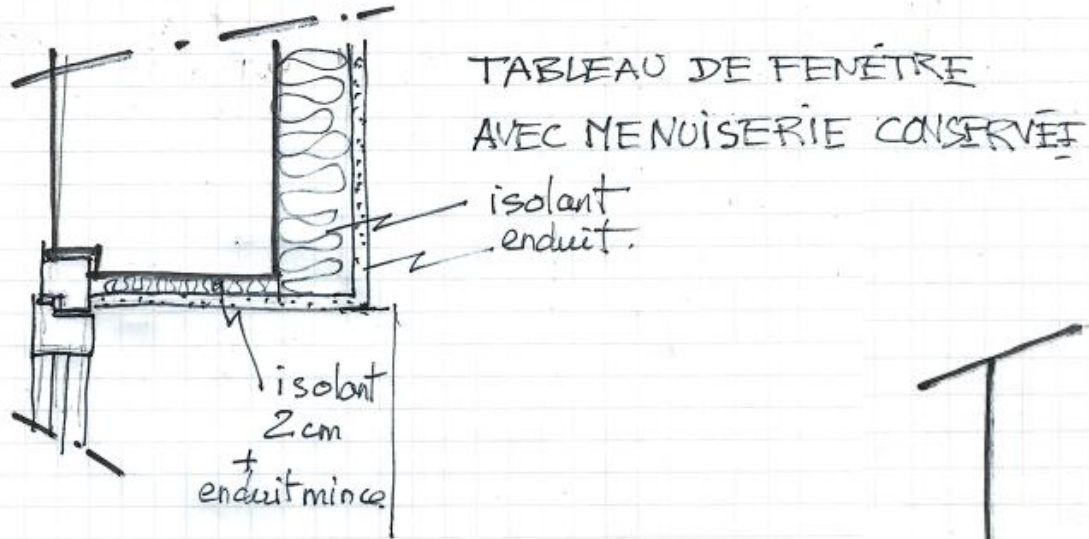 TABLEAU DE FENÊTRE
AVEC MENUISERIE CONSERVÉE
isolant
enduit.
isolant
2 cm
+
enduit mince